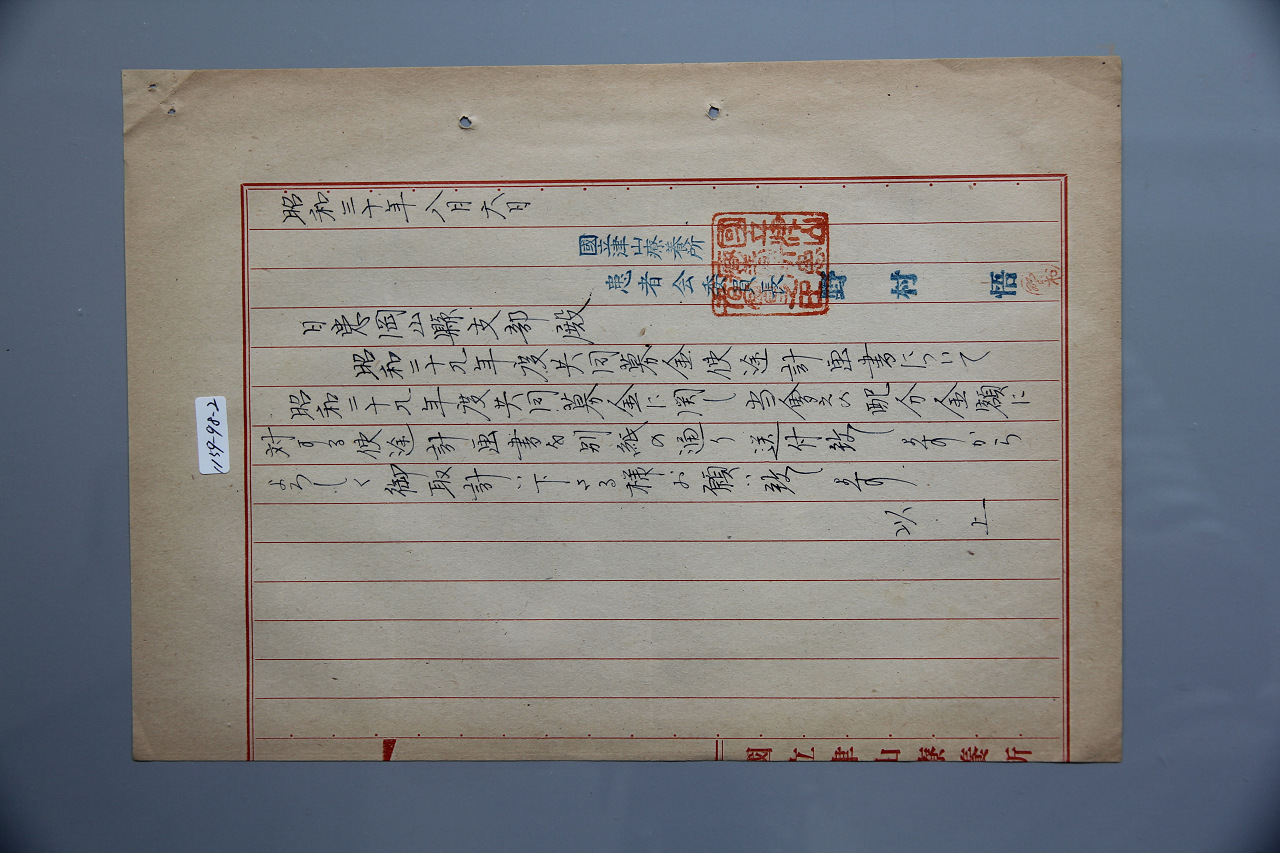 昭和三十年八月六日
國立津山療養所
患者会委員長 野村 悟
日患岡山縣支部殿
昭和二十九年度共同募金使途計画書について
昭和二十九年度共同募金に関し当會え配分金額に
対する使途計画書を別紙の通り送付致しますから
よろしく御取計い下さる様お願い致します
以上
國立津山療養所
1159-98-2